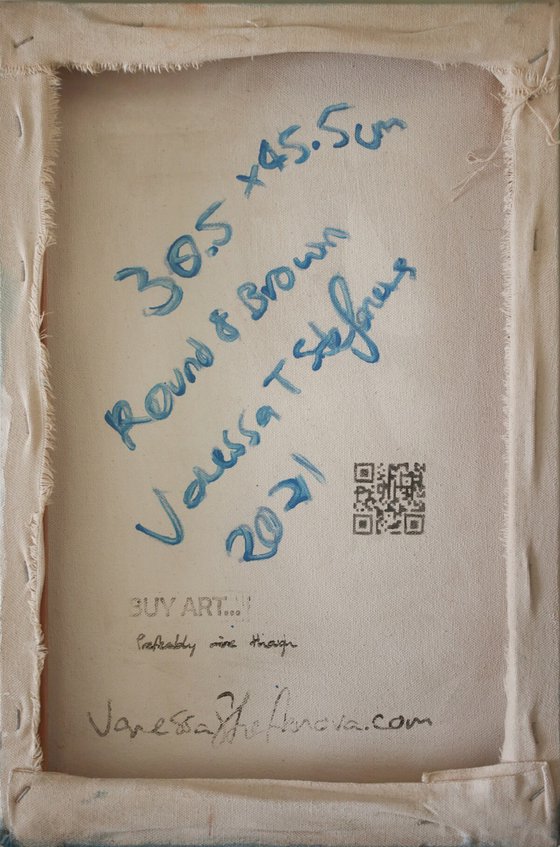 30.5 x45.5cm
Round & Brown
Vanessa T Stefanova
2021
BUY ART...!
Preferably mine though
VanessaTStefanova.com